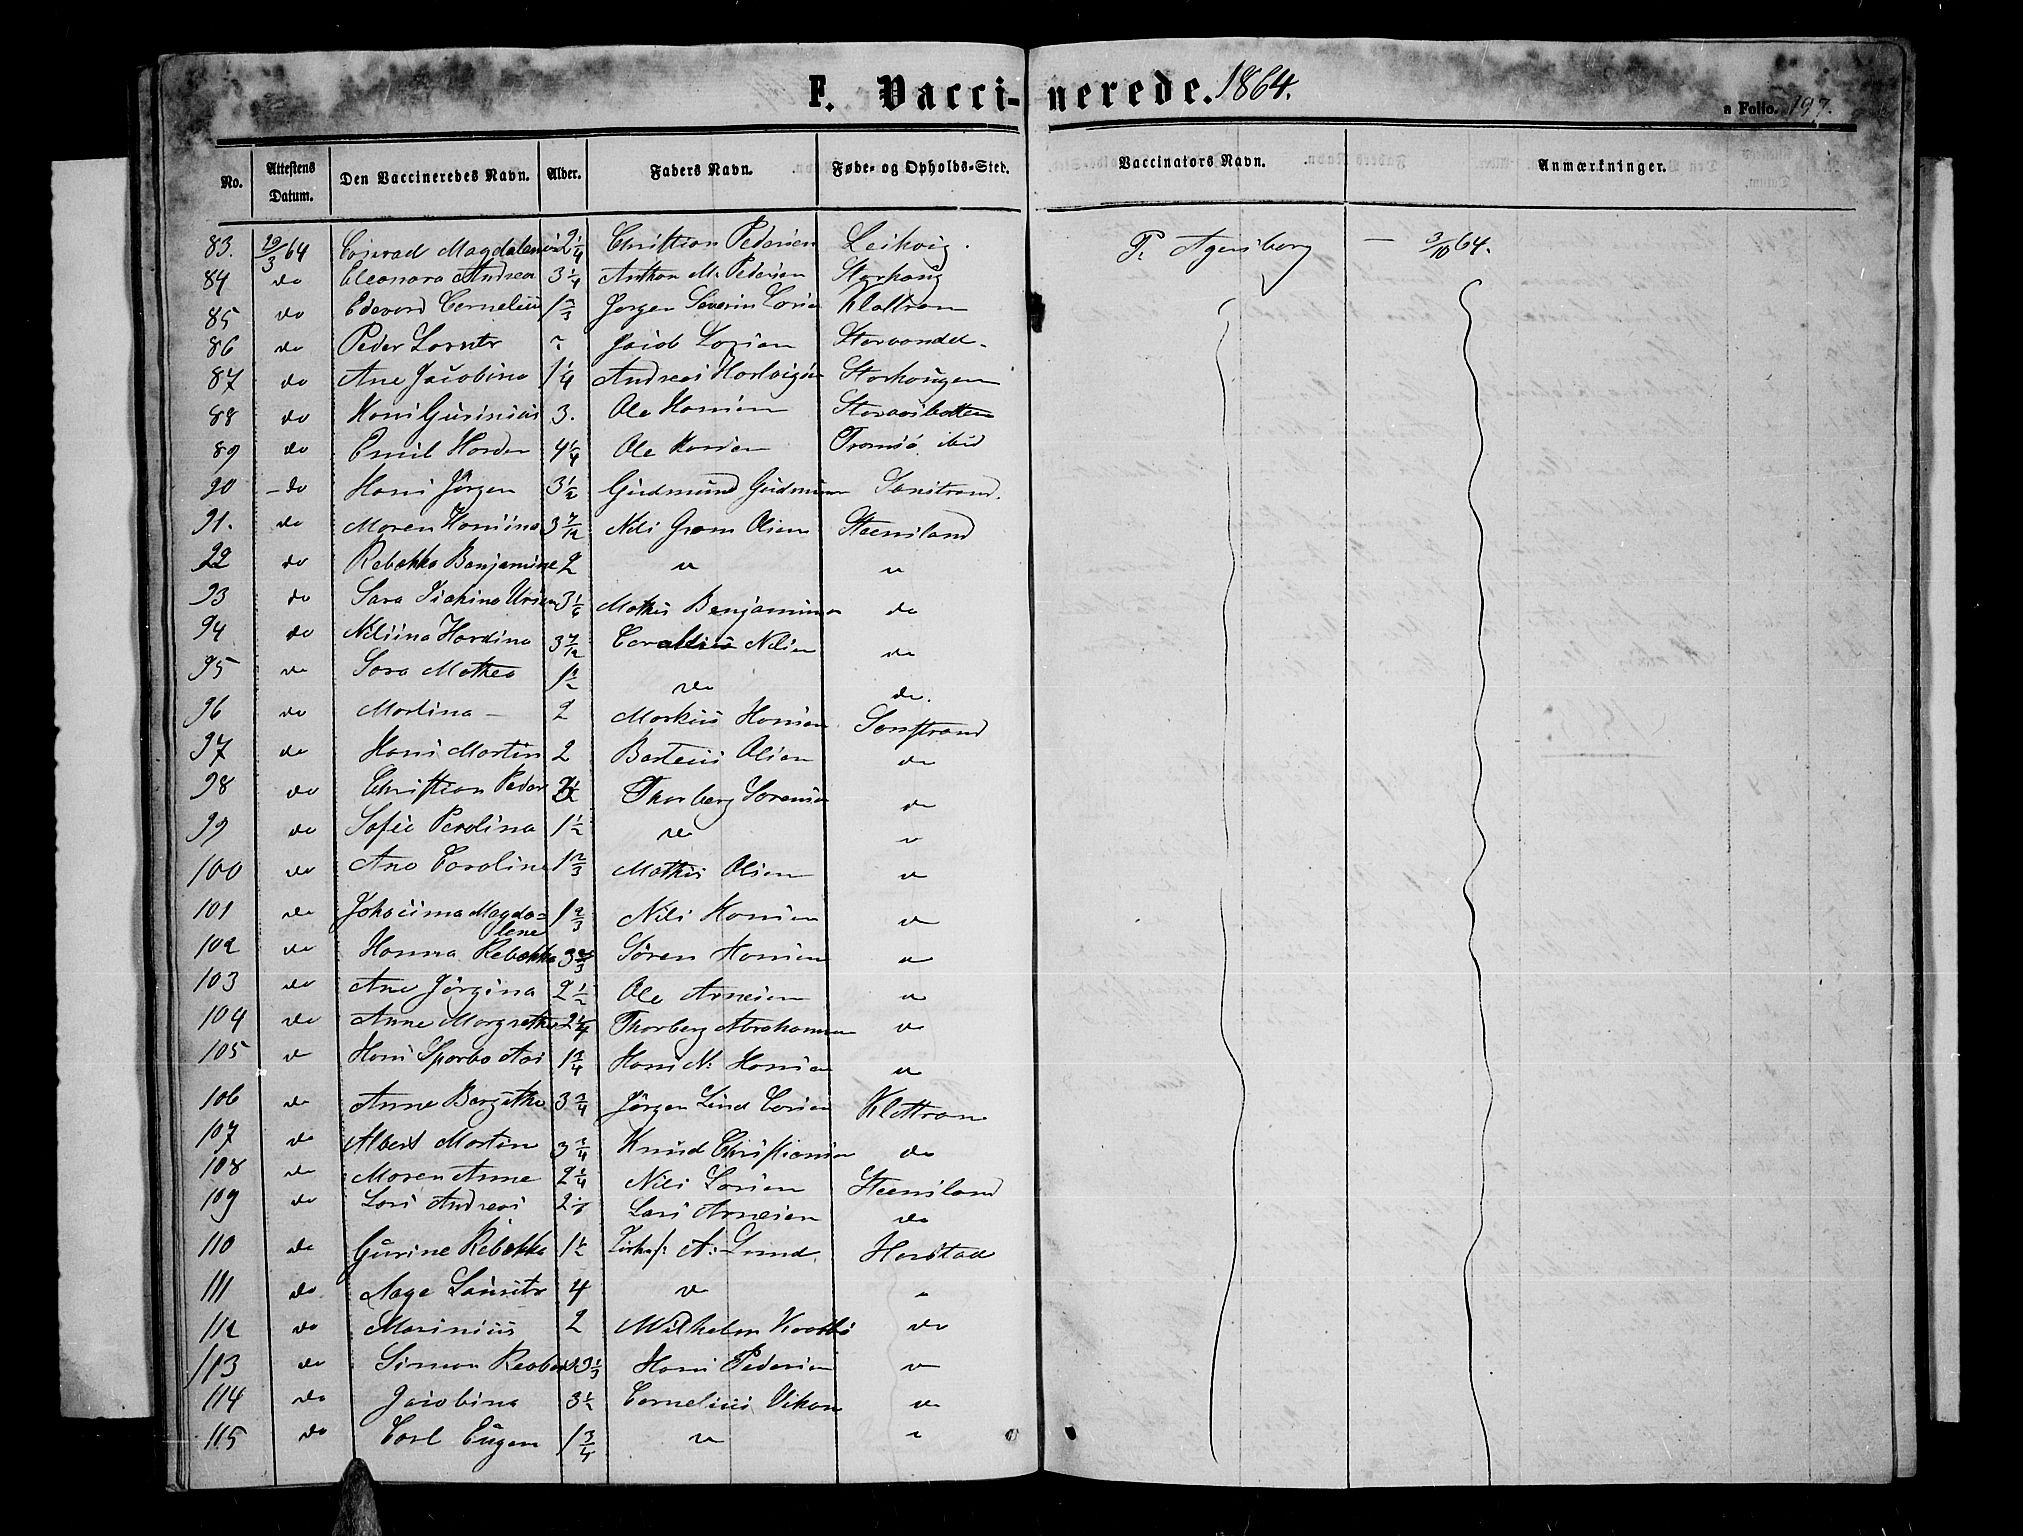 F. Vaccinerede. 1864.
a Folio. 197.
No. Attestens Datum. Den Vaccineredes Navn. Alder. Faders Navn. Føde- og Opholds-Sted. Vaccinators Navn. Anmærkninger.
83. 29/3 64 Conrad Magdalenus 2 1/4 Christian Pedersen Leikvig. P. Agersborg — 3/10 64.
84 do Eleonora Andrea 3 1/4 Anthon M. Pedersen Storhaug
85 do Edevard Cornelius 1 2/3 Jørgen Severin Klottran
86 do Peder Lorntz Jacob Storvandet.
87 do Ane Jacobina 1 1/4 Andreas Storhaugen
88 do Hans Gurinius 3. Ole Hansen Storvasbotten
89 do Emil Hardin 4 1/4 Ole Tromsø ibid
90 - do Hans Jørgen 3 1/2 Gudmund Gudmun Sanstrand.
91. do Maren Hansina 3 7/12 Nils Gram Olsen Steensland
92 do Rebekka Benjamine 2 " "
93 do Sara 3 1/6 Mathis Benjaminsen do
94 do Nilsina Hardina 3 7/12 Cornelius Nilsen do
95 do Sara Mathea 1 1/2 do do.
96 do Martina — 2 Markus Hansen Sanstrand
97 do Hans Martin 2 Barteus Olsen do
98 do Christian Peder Thorberg Sørensen do
99 do Sofie Perolina 1 1/2 do "
100 do Ane Caroline 1 2/3 Mathis Olsen "
101 do Johanna Magda=
lene 1 2/3 Nils Hansen "
102 do Hanna Rebekka 3 2/3 Søren Hansen "
103 do Ane Jørgina 2 1/2 Ole Arnesen "
104 do Anne Margrethe 2 1/4 Thorberg Abrahamsen "
105 " Hans Sparbo 1 3/4 Hans N. Hansen "
106 do Anne Bergithe 3 3/4 Jørgen Lind Klottran
107 do Albert Martin 3 3/4 Knud Christiansen do
108 do Maren Anne 2 1/4 Nils Larsen Steensland
109 do Lars Andreas 2 Lars Arnesen do
110 do Gurine Rebekka 1 1/2 A. Lund. Harstad
111 do Aage Lauritz 4 " "
112 do Marinius 2 Wilhelm do
113 do Simon 3 1/3 Hans Pedersen "
114 do Jacobina 3 1/2 Cornelius Vikan "
115 do Carl Eugen 1 3/4 " "